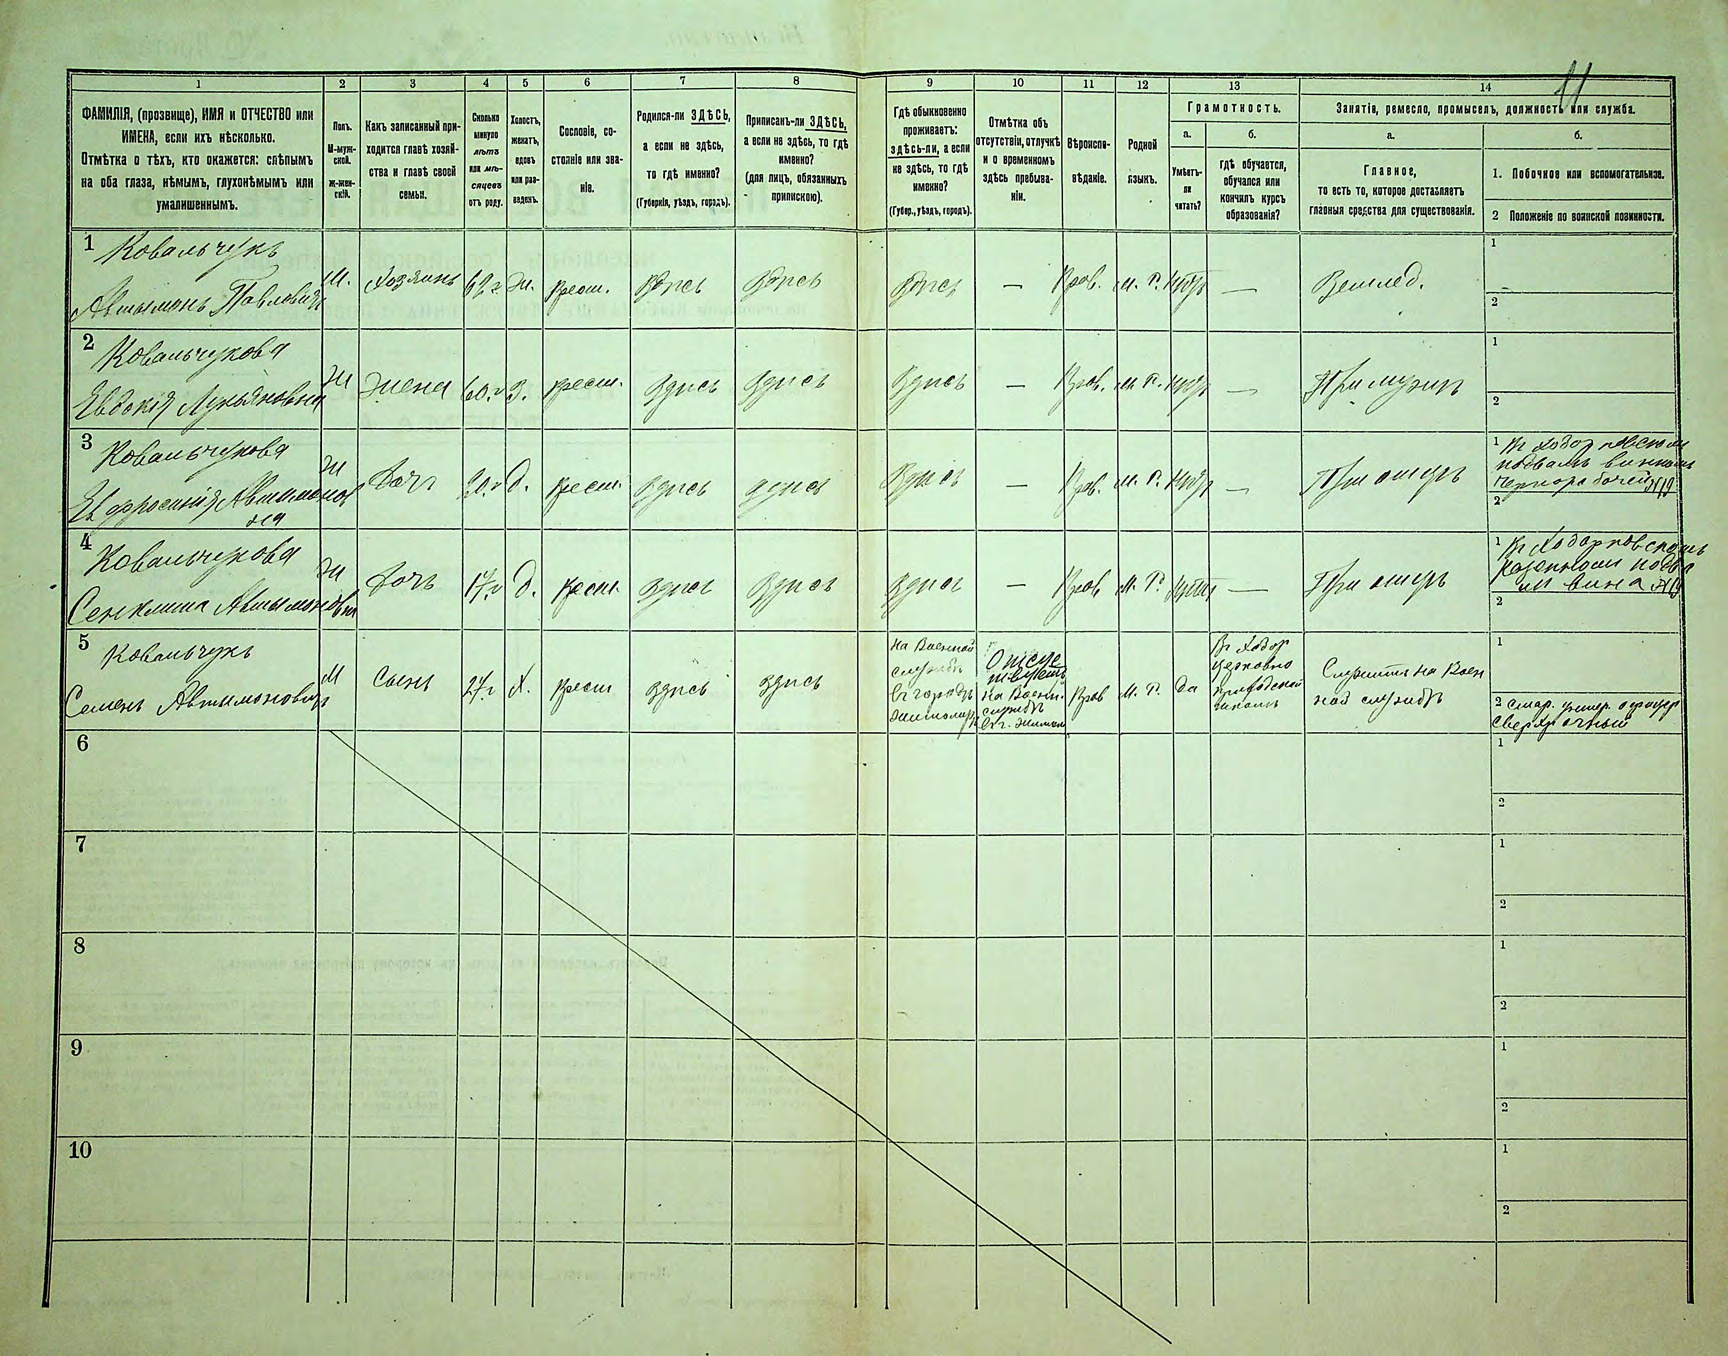 11
1 2 3 4 5 6 7 8 9 10 11 12 13 14
ФАМИЛІЯ, (прозвище), ИМЯ и ОТЧЕСТВО или
ИМЕНА, если ихъ нѣсколько.
Отмѣтка о тѣхъ, кто окажется: слѣпымъ
на оба глаза, нѣмымъ, глухонѣмымъ или
умалишеннымъ.
Полъ.
М-муж-
ской.
ж-жен-
скій.
Какъ записанный при-
ходится главѣ хозяй-
ства и главѣ своей
семьи.
Сколько
минуло
лѣтъ
или мѣ-
сяцевъ
отъ роду.
Холостъ,
женатъ,
вдовъ
или раз-
веденъ.
Сословіе, со-
стояніе или зва-
ніе.
Родился-ли ЗДѢСЬ,
а если не здѣсь,
то гдѣ именно?
(Губернія, уѣздъ, городъ).
Приписанъ-ли ЗДѢСЬ,
а если не здѣсь, то гдѣ
именно?
(для лицъ, обязанныхъ
припискою).
Гдѣ обыкновенно
проживаетъ:
здѣсь-ли, а если
не здѣсь, то гдѣ
именно?
(Губер., уѣздъ, городъ).
Отмѣтка объ
отсутствіи, отлучкѣ
и о временномъ
здѣсь пребыва-
ніи.
Вѣроиспо-
вѣданіе.
Родной
языкъ.
Грамотность.
а.
Умѣетъ-
ли
читать?
б.
гдѣ обучается,
обучался или
кончилъ курсъ
образованія?
Занятія, ремесло, промыселъ, должность или служба.
а.
Главное,
то есть то, которое доставляетъ
главныя средства для существованія.
б.
1. Побочное или вспомогательное.
2 Положеніе по воинской повинности.
1 Ковальчукъ
Автымонъ Павловичъ
М. Хозяинъ Ж. Крест. Здѣсь Здѣсь Здѣсь — Прав. М. Р. нѣтъ — Землед.
1
2
2 Ковальчукова
Евдокія Лукьяновна
Ж Жена 60. З. крест. Здѣсь Здѣсь Здѣсь — Прав. М. Р. нѣтъ — При мужѣ
1
2
3 Ковальчукова
Евфросинія Автымонов
на
Ж Дочь 20. Д. Крест. Здѣсь Здѣсь Здѣсь — Прав. М. Р. нѣтъ — При отцѣ
1 Въ Ходорковском
подвалѣ винном
чернорабочей
2
4 Ковальчукова
Сенклита Автымоновна
Ж Дочь 17. Д. Крест. Здѣсь Здѣсь Здѣсь — Прав М. Р. нѣтъ — При отцѣ
1 Въ Ходорковскомъ
казенномъ подва
лѣ вина
2
5 Ковальчукъ
Семенъ Автымоновичъ
М Сынъ 27. Х. Крест Здѣсь Здѣсь
На Военной
службѣ
въ городѣ
Житомирѣ
Отсут
ствуетъ
на Военн.
службѣ
въ г. Житом
Прав М. Р. да
Въ Ходор
церковно
приходской
школѣ
Служитъ на Воен
ной службѣ
1
2 стар. унтер офицер
сверхсрочный
6
1
2
7
1
2
8
1
2
9
1
2
10
1
2